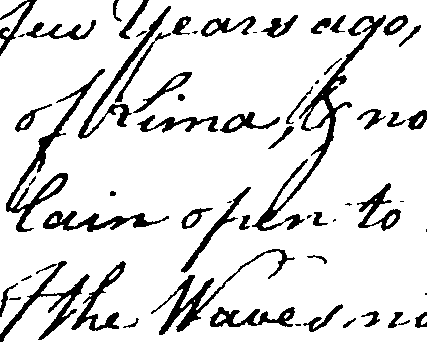 few Years ago,
of Lima, & no
lain open to
the Waves ni